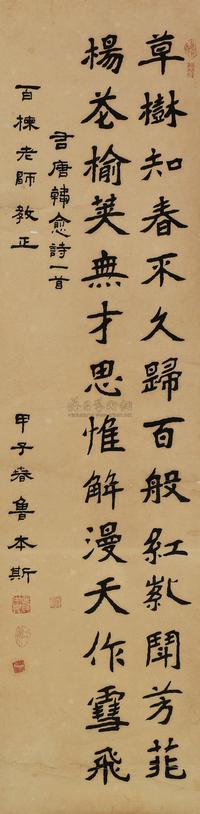 草樹知春不久歸百般紅紫鬪芳菲
楊花榆莢無才思惟解漫天作雪飛
唐韓愈詩一首
百楝老師教正
甲子春魯本斯